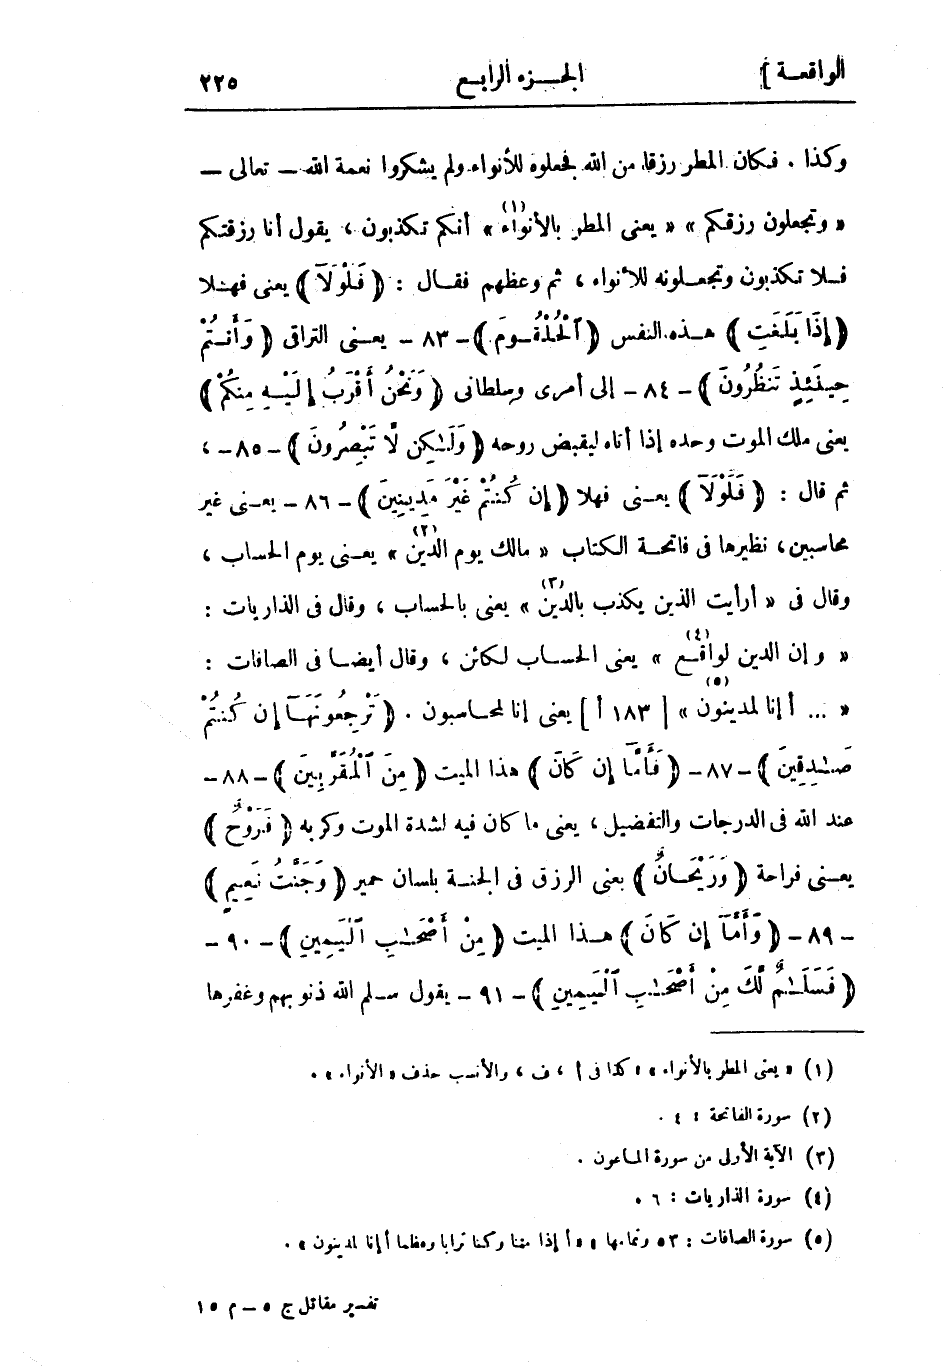 الواقعة ]
الجـزء الرابع
٢٢٥
وكذا . فكان المطر رزقا من الله فجعلوه للأنواء ولم يشكروا نعمة الله — تعالى —
« وتجعلون رزقكم » « يعنى المطر بالأنواء (١) » أنكم تكذبون ، يقول أنا رزقتكم
فـلا تكذبون وتجعـلونه للأنواء ، ثم وعظهم فقـال : ﴿ فَلَوْلَآ ﴾ يعنى فهـلا
﴿ إِذَا بَلَغَتِ ﴾ هـذه النفس ﴿ ٱلْحُلْقُـومَ ﴾ - ٨٣ - يعـنى التراقى ﴿ وَأَنتُمْ
حِينَئِذٍ تَنظُرُونَ ﴾ - ٨٤ - إلى أمرى وسلطانى ﴿ وَنَحْنُ أَقْرَبُ إِلَيْـهِ مِنكُمْ ﴾
يعنى ملك الموت وحده إذا أتاه ليقبض روحه ﴿ وَلَـٰكِن لَّا تُبْصِرُونَ ﴾ - ٨٥ - ،
ثم قال : ﴿ فَلَوْلَآ ﴾ يعـنى فهلا ﴿ إِن كُنتُمْ غَيْرَ مَدِينِينَ ﴾ - ٨٦ - يعـنى غير
محاسبين ، نظيرها فى فاتحـة الكتاب « مالك يوم الدين (٢) » يعـنى يوم الحساب ،
وقال فى « أرأيت الذين يكذب بالدين (٣) » يعنى بالحساب ، وقال فى الذاريات :
« وإن الدين لواقـع (٤) » يعنى الحسـاب لكائن ، وقال أيضـا فى الصافات :
« ... أإنا لمدينون (٥) » [ ١٨٣ أ ] يعنى إنا لمحـاسبون . ﴿ تَرْجِعُونَهَـآ إِن كُنتُمْ
صَـٰدِقِينَ ﴾ - ٨٧ - ﴿ فَأَمَّآ إِن كَانَ ﴾ هذا الميت ﴿ مِنَ ٱلْمُقَرَّبِينَ ﴾ - ٨٨ -
عند الله فى الدرجات والتفضيل ، يعنى ما كان فيه لشدة الموت وكربه ﴿ فَرَوْحٌ ﴾
يعـنى فراحة ﴿ وَرَيْحَـانٌ ﴾ يعنى الرزق فى الجنـة بلسان حمير ﴿ وَجَنَّتُ نَعِيمٍ ﴾
- ٨٩ - ﴿ وَأَمَّآ إِن كَانَ ﴾ هـذا الميت ﴿ مِنْ أَصْحَـٰبِ ٱلْيَـمِينِ ﴾ - ٩٠ -
﴿ فَسَلَـٰمٌ لَّكَ مِنْ أَصْحَـٰبِ ٱلْيَـمِينِ ﴾ - ٩١ - يقول سـلم الله ذنوبهم وغفرها
(١) « يعنى المطر بالأنواء » : كذا فى أ ، ف ، والأنسب حذف « الأنواء » .
(٢) سورة الفاتحة : ٤ .
(٣) الآية الأولى من سورة المـاعون .
(٤) سورة الذاريات : ٦ .
(٥) سورة الصافات : ٥٣ وتمامها : « أإذا متنا وكنا ترابا وعظاما أإنا لمدينون » .
تفسير مقاتل ج ٥ — م ١٥